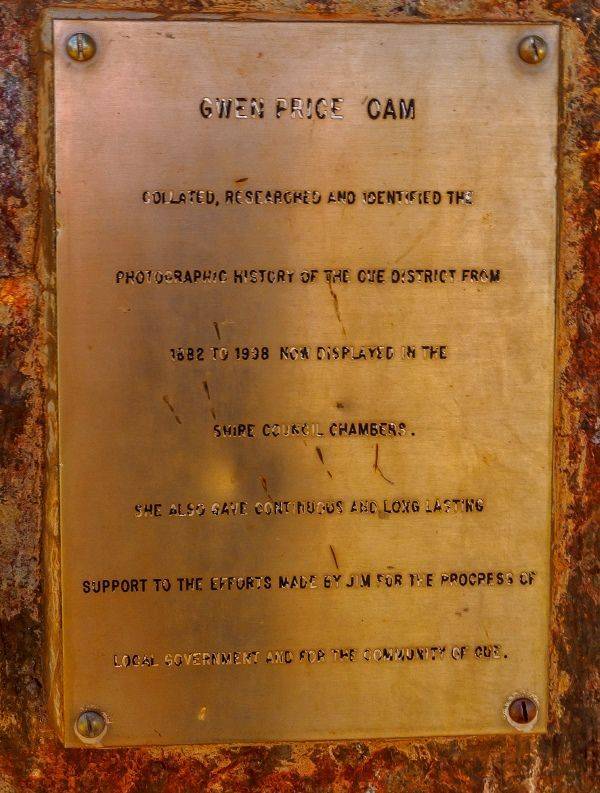 GWEN PRICE OAM
COLLATED, RESEARCHED AND IDENTIFIED THE
PHOTOGRAPHIC HISTORY OF THE CUE DISTRICT FROM
TO NOW DISPLAYED IN THE
SHIRE COUNCIL CHAMBERS.
SHE ALSO GAVE CONTINUOUS AND LONG LASTING
SUPPORT TO THE EFFORTS MADE BY JIM FOR THE PROGRESS OF
LOCAL GOVERNMENT AND FOR THE COMMUNITY OF CUE.